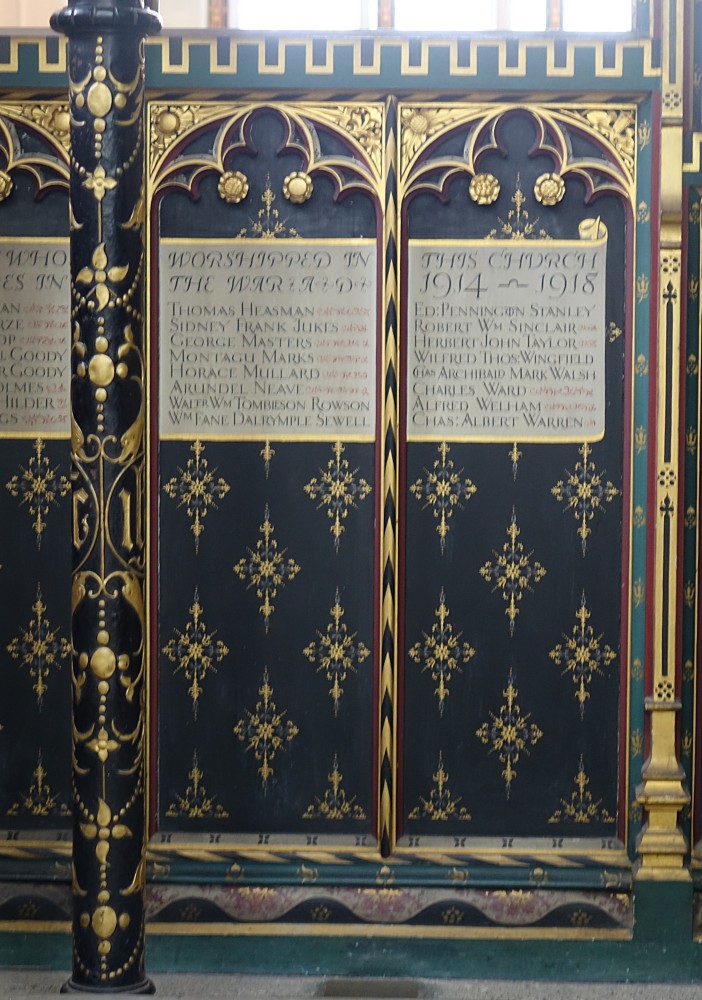 WHO
ES IN
GOODY
GOODY
HOLMES
HILDER
WORSHIPPED IN
THE WAR: A·D:
THOMAS HEASMAN
SIDNEY FRANK JUKES
GEORGE MASTERS
MONTAGU MARKS
HORACE MULLARD
ARUNDEL NEAVE
WALTER WM TOMBLESON ROWSON
WM FANE DALRYMPLE SEWELL
THIS CHURCH
1914 – 1918
ED: PENNINGTON STANLEY
ROBERT WM SINCLAIR
HERBERT JOHN TAYLOR
WILFRED THOS: WINGFIELD
CHAS ARCHIBALD MARK WALSH
CHARLES WARD
ALFRED WELHAM
CHAS: ALBERT WARREN